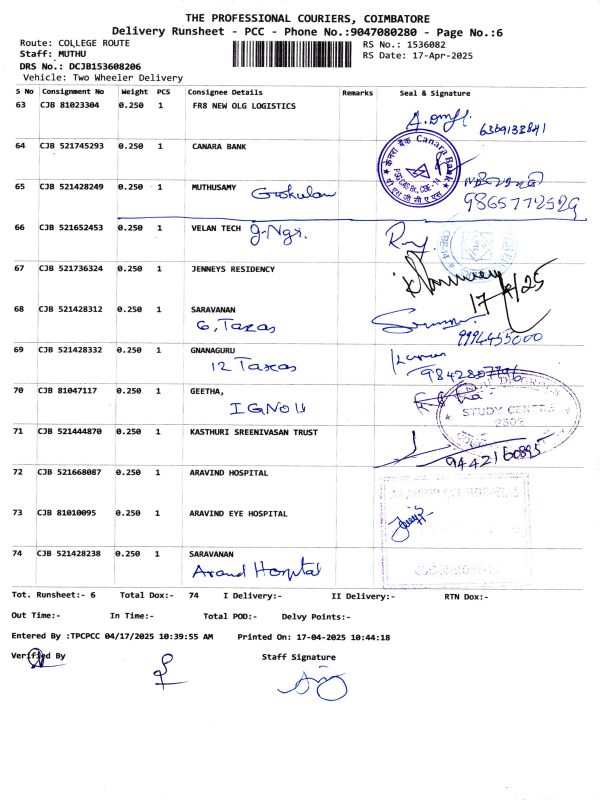 THE PROFESSIONAL COURIERS, COIMBATORE
Delivery Runsheet - PCC - Phone No.:9047080280 - Page No.:6
Route: COLLEGE ROUTE RS No.: 1536082
Staff: MUTHU RS Date: 17-Apr-2025
DRS No.: DCJB153608206
Vehicle: Two Wheeler Delivery
S No Consignment No Weight PCS Consignee Details Remarks Seal & Signature
63 CJB 81023304 0.250 1 FR8 NEW OLG LOGISTICS
6369138841
64 CJB 521745293 0.250 1 CANARA BANK
Canara Bank
65 CJB 521428249 0.250 1 MUTHUSAMY Gokulan
9865772529
66 CJB 521652453 0.250 1 VELAN TECH J-Ngr.
67 CJB 521736324 0.250 1 JENNEYS RESIDENCY
17/4/25
68 CJB 521428312 0.250 1 SARAVANAN
6, Taxas
9994455000
69 CJB 521428332 0.250 1 GNANAGURU
12 Taxas
9842887796
70 CJB 81047117 0.250 1 GEETHA,
IGNOU
STUDY CENTRE
2502
71 CJB 521444870 0.250 1 KASTHURI SREENIVASAN TRUST
9442160895
72 CJB 521668087 0.250 1 ARAVIND HOSPITAL
73 CJB 81010095 0.250 1 ARAVIND EYE HOSPITAL
74 CJB 521428238 0.250 1 SARAVANAN
Arand Hospital
Tot. Runsheet:- 6 Total Dox:- 74 I Delivery:- II Delivery:- RTN Dox:-
Out Time:- In Time:- Total POD:- Delvy Points:-
Entered By :TPCPCC 04/17/2025 10:39:55 AM Printed On: 17-04-2025 10:44:18
Verified By Staff Signature